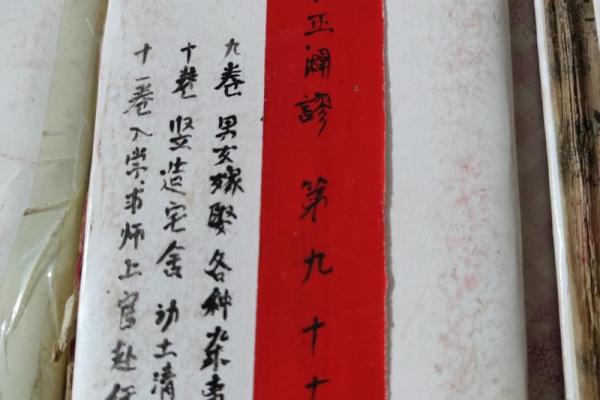 正闢謬 第九十十
九卷 男女嫁娶各种杂
十卷 竖造宅舍 动土清
十一卷入学求师上官赴任